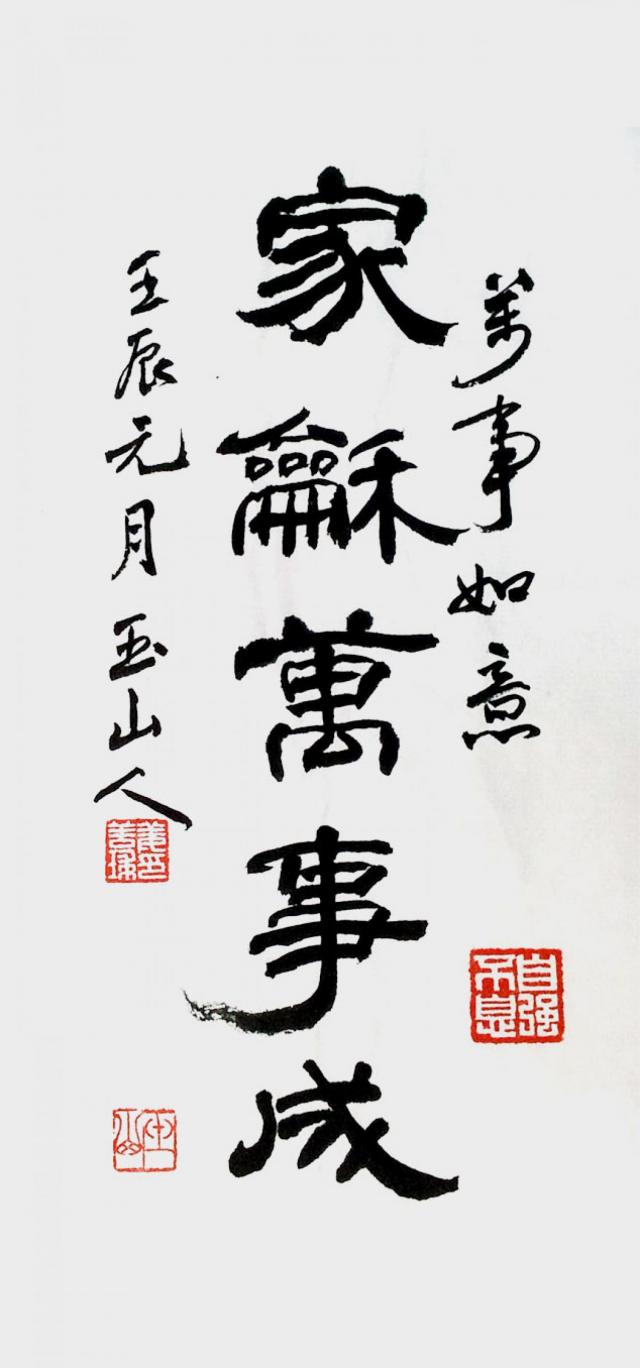 萬事如意
自强不息
家龢萬事成
壬辰元月玉山人